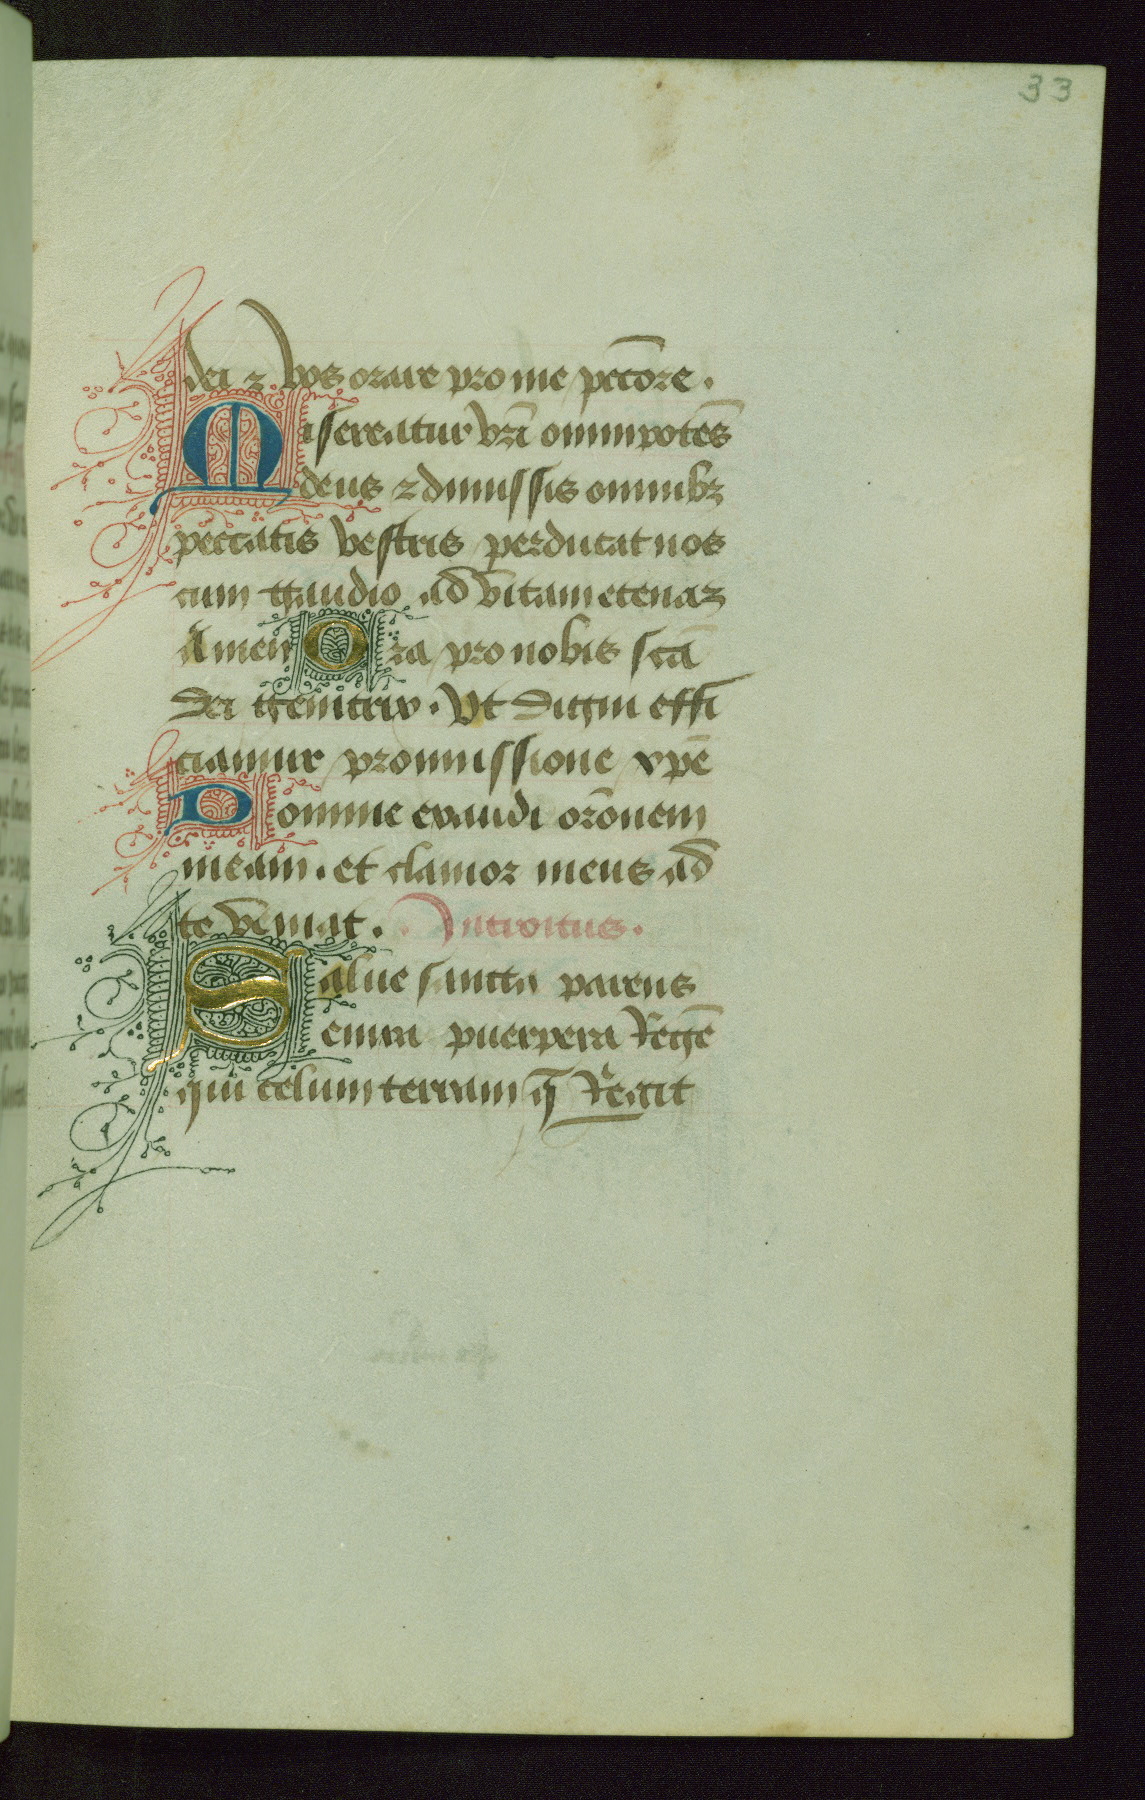 33
dei ⁊ vos orare pro me pctōre.
Misereatur vr̄i omnipotēs
deus ⁊ dimissis omnibꝫ
peccatis vestris perducat nos
cum gaudio ad vitam etenaꝫ
Amen Ora pro nobis scā
dei genitrix. Vt digni effi
ciamur promissione xpē
Domine exaudi orōnem
meam. et clamor meus ad
te veniat. Introitus.
Salue sancta parens
enixa puerpera Regē
qui celum terram q̄ Regit